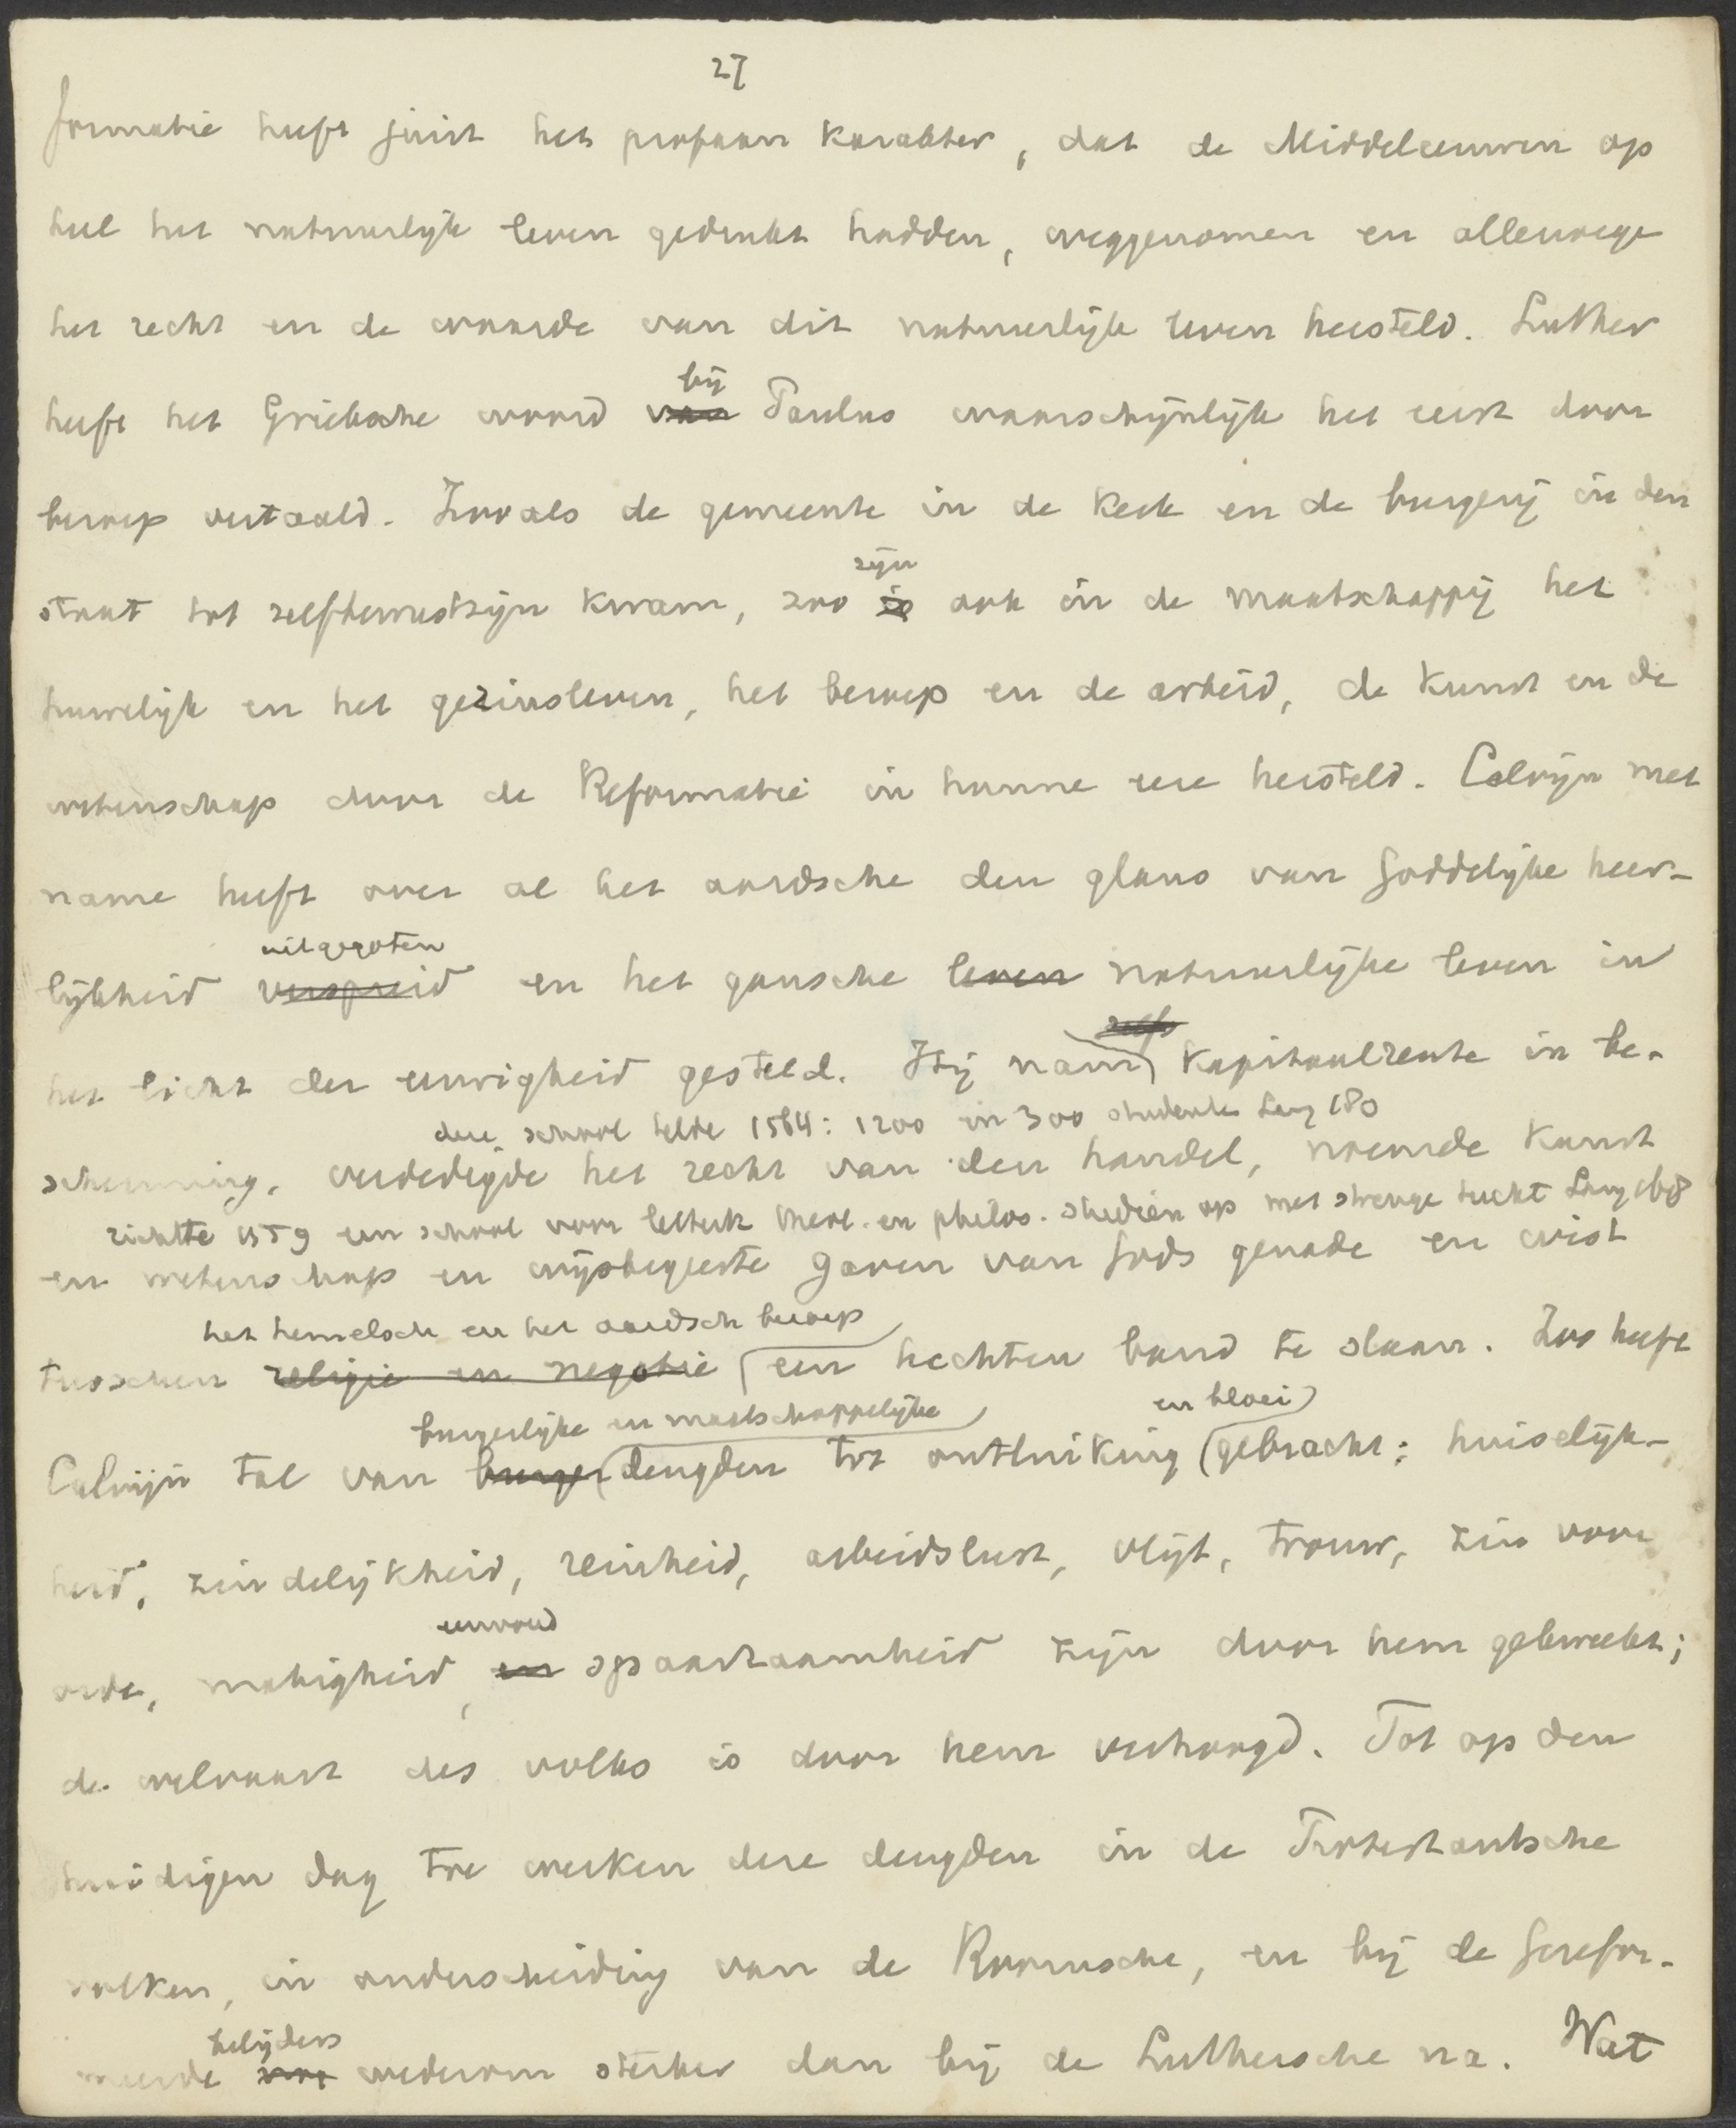 27
formatie heeft juist het profaan karakter, dat de Middeleeuwen op
heel het natuurlijk leven gedrukt hadden, weggenomen en allerwege
het recht en de waarde van dit natuurlijk leven hersteld. Luther
bij
heeft het Grieksche woord van Paulus waarschijnlijk het eerst door
beroep vertaald. Zooals de gemeente in de kerk en de burgerij in den
zijn
staat tot zelfbewustzijn kwam, zoo is ook in de maatschappij het
huwelijk en het gezinsleven, het beroep en de arbeid, de kunst en de
wetenschap door de Reformatie in hunne eere hersteld. Calvijn met
name heeft over al het aardsche den glans van Goddelijke heer-
uitgegoten
lijkheid verspreid en het gansche leven natuurlijke leven in
zelfs
het licht der eeuwigheid gesteld. Hij nam kapitaalrente in be-
deze school telde 1564: 1200 en 300 studenten Lang 180
scherming, verdedigde het recht van den handel, noemde kunst
richtte 1559 een school voor letterk theol. en philos. studiën op met strenge tucht Lang 168
en wetenschap en wijsbegeerte gaven van Gods genade en wist
het hemelsch en het aardsch beroep
tusschen religie en negotie een hechten band te slaan. Zoo heeft
burgerlijke en maatschappelijke en bloei
Calvijn tal van burger deugden tot ontluiking gebracht: huiselijk-
heid, zindelijkheid, reinheid, arbeidslust, vlijt, trouw, zin voor
eenvoud
orde, matigheid, en spaarzaamheid zijn door hem gekweekt;
de welvaart des volks is door hem verhoogd. Tot op den
huidigen dag toe werken deze deugden in de Protestantsche
volken, in onderscheiding van de Roomsche, en bij de Gerefor-
belijders
meerde wederom sterker dan bij de Luthersche na. Wat